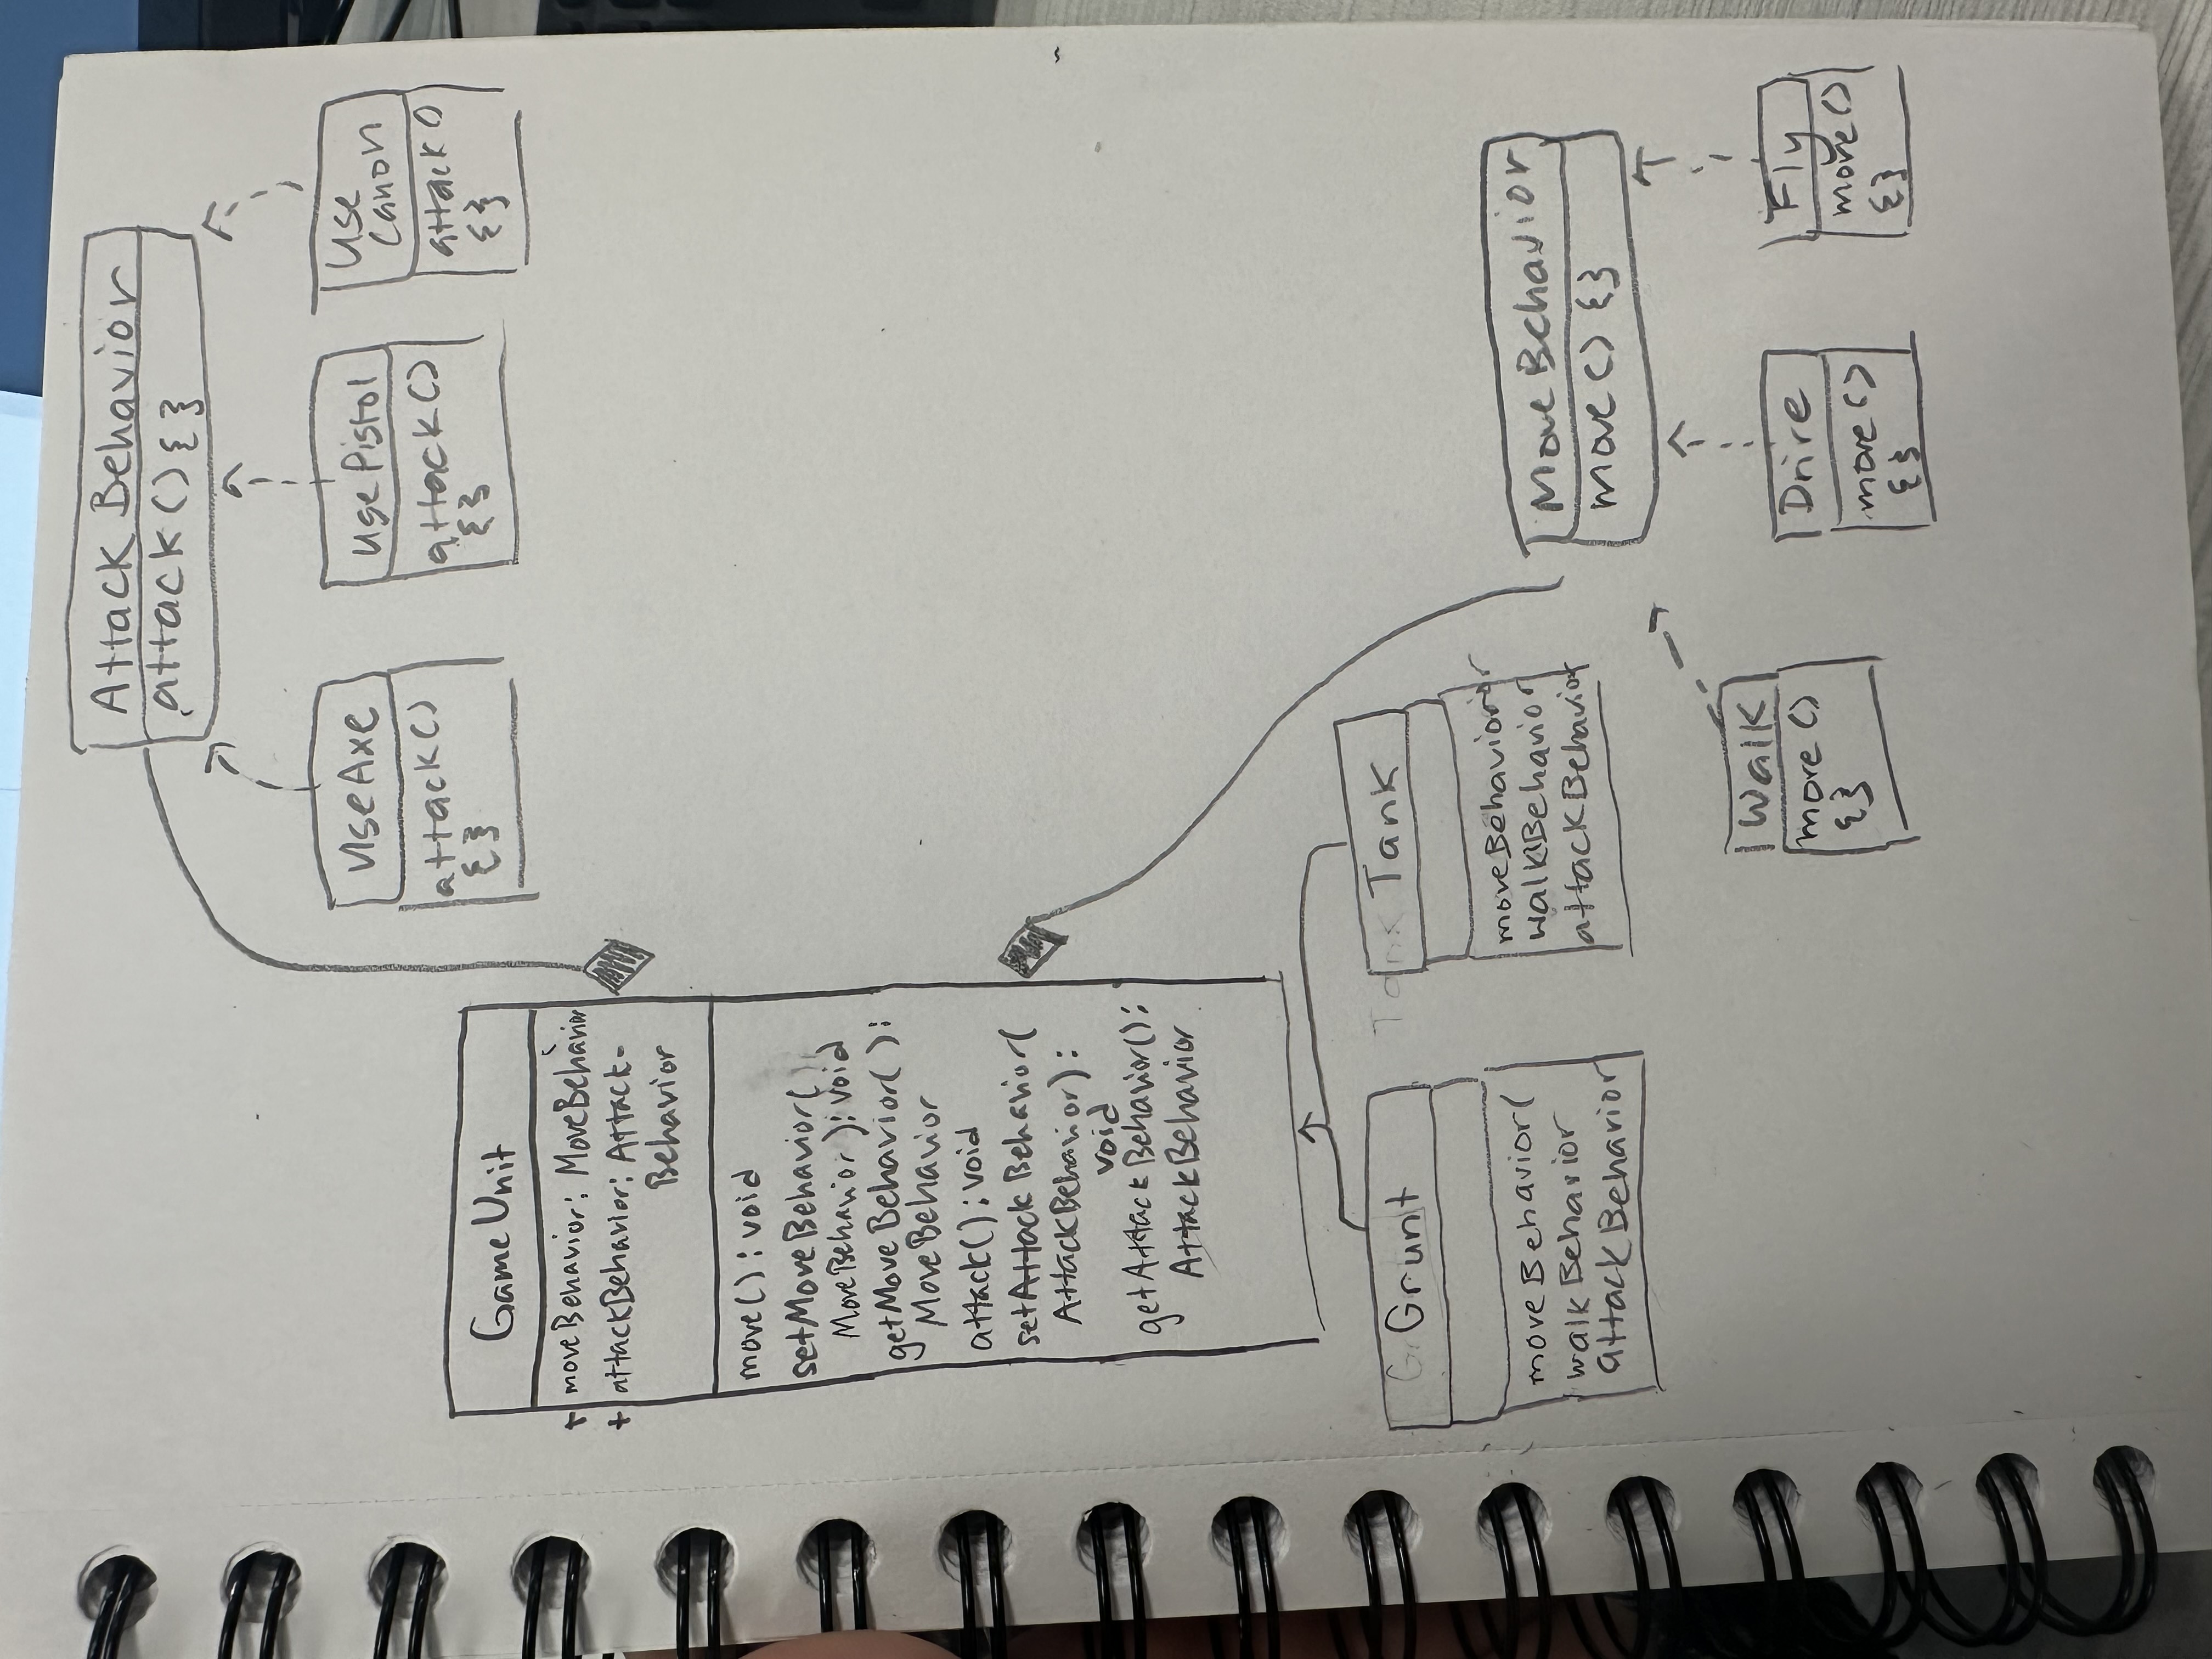 Attack Behavior
attack() {}
UseAxe
attack()
{}
UsePistol
attack()
{}
Use
Canon
attack()
{}
GameUnit
+ moveBehavior: MoveBehavior
+ attackBehavior: Attack-
Behavior
move(): void
setMoveBehavior(
MoveBehavior): void
getMoveBehavior():
MoveBehavior
attack(): void
setAttackBehavior(
AttackBehavior):
void
getAttackBehavior():
AttackBehavior
Grunt
moveBehavior(
walkBehavior
attackBehavior
Tank
Tank
moveBehavior
walkBehavior
attackBehavior
MoveBehavior
move() {}
Walk
move()
{}
Drive
move()
{}
Fly
move()
{}